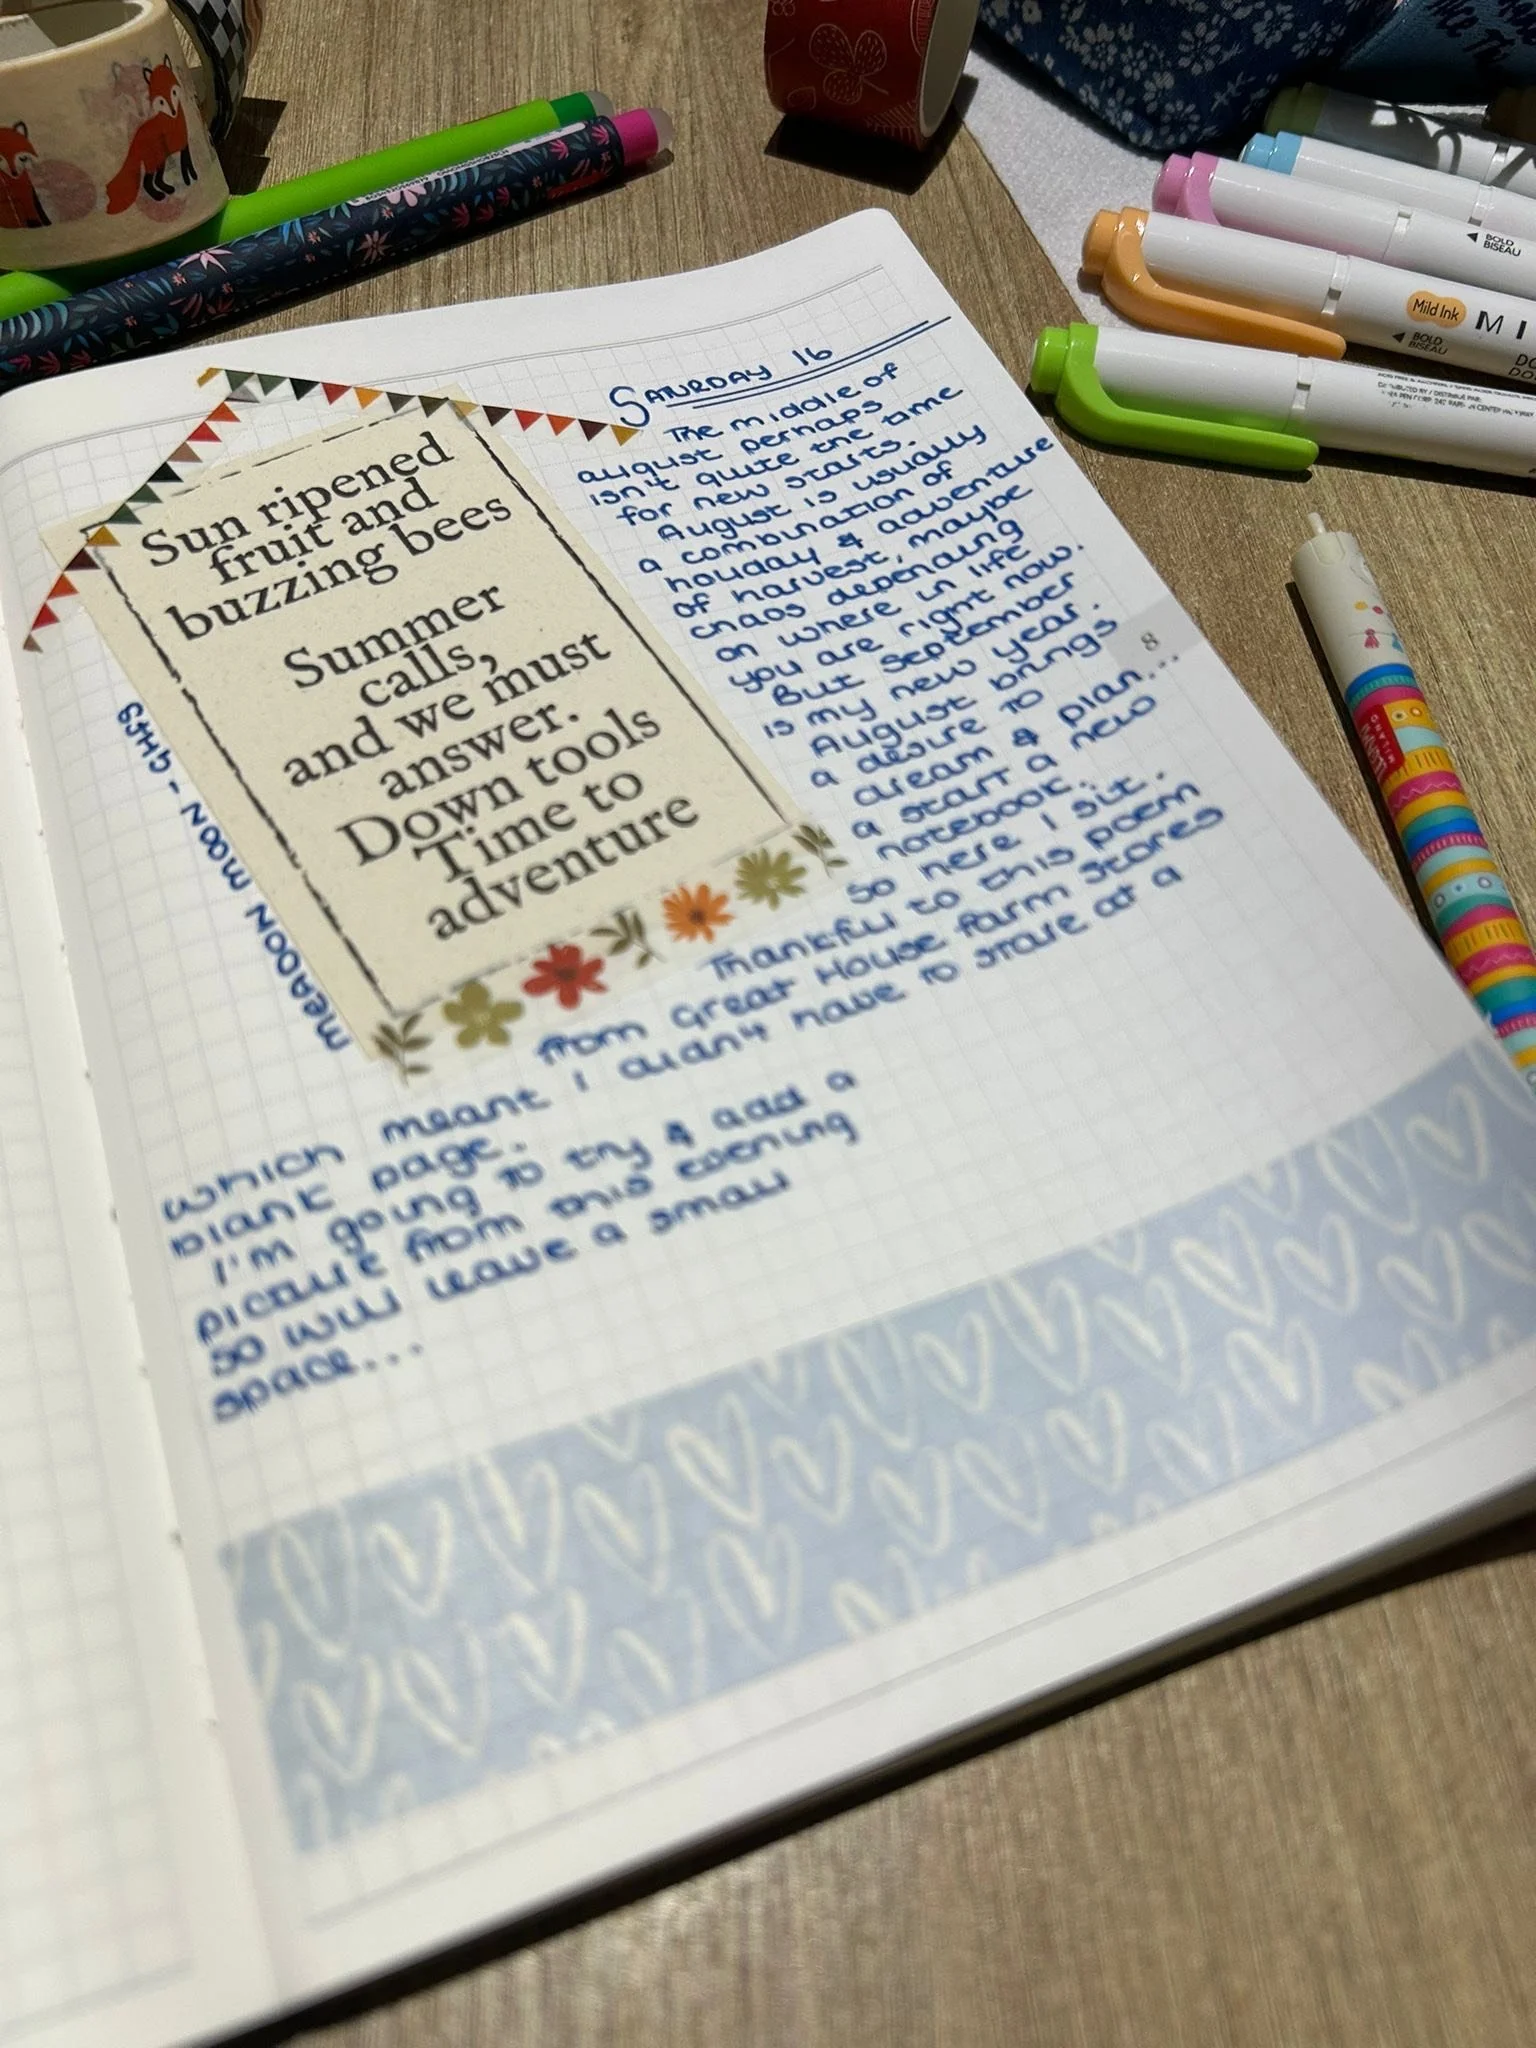 SATURDAY 16
The middle of
august perhaps
isn't quite the time
for new starts.
August is usually
a combination of
holiday & adventure
of harvest, maybe
chaos depending
on where in life
you are right now.
But September
is my new year.
August brings
a desire to
dream & plan...
a start a new
notebook..
so here I sit.
Thankful to this poem
from Great House farm stores
which meant I didn't have to stare at a
blank page.
I'm going to try & add a
picture from this evening
so will leave a small
space...
Sun ripened
fruit and
buzzing bees
Summer
calls,
and we must
answer.
Down tools
Time to
adventure
MEADOON MOON -
8
Mild Ink
BOLD
BISEAU
BOLD
BISEAU
MILANO